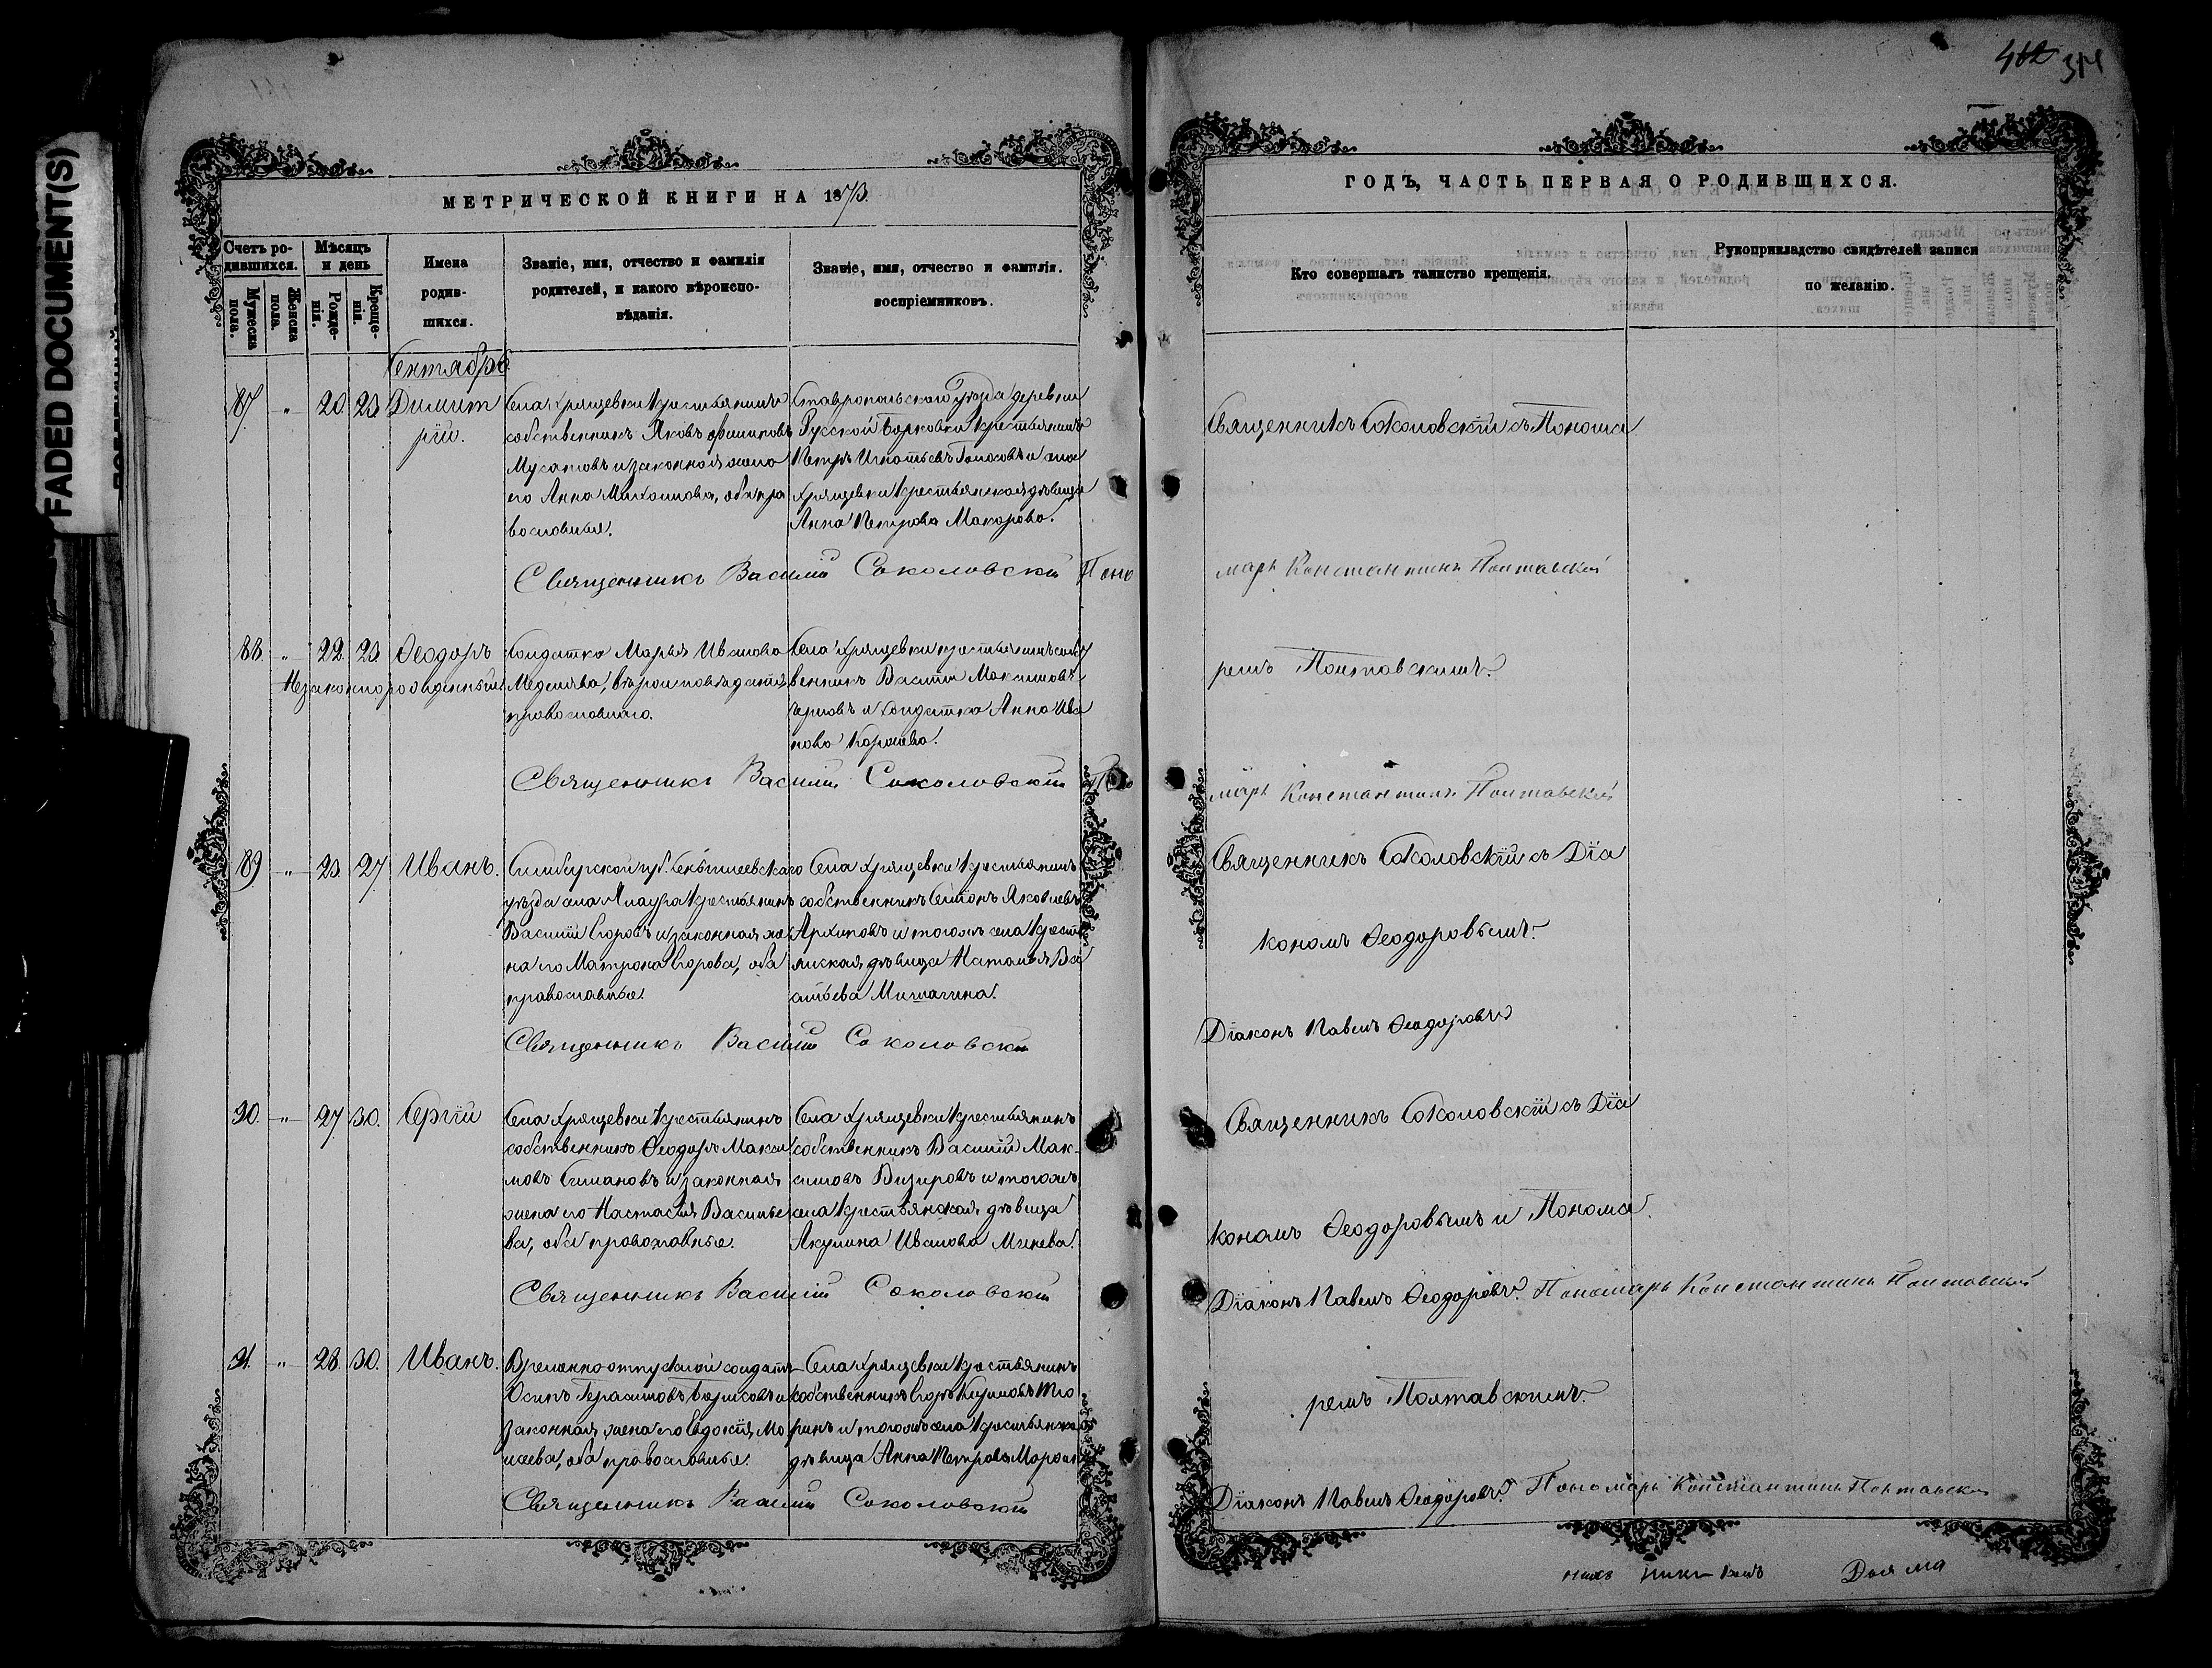 FADED DOCUMENT(S)
МЕТРИЧЕСКОЙ КНИГИ НА 1873.
Счетъ ро-
дившихся.
Мужеска
пола.
Женска
пола.
Мѣсяцъ
и день
Рожде-
нія.
Креще-
нія.
Имена
родив-
шихся.
Званіе, имя, отчество и фамилія
родителей, и какого вѣроиспо-
вѣданія.
Званіе, имя, отчество и фамилія.
воспріемниковъ.
Сентябрь
87. " 20. 23. Димит
рій.
Села Хрящевки крестьянинъ
собственникъ Яковъ Филиповъ
Мусатовъ и законная жена
его Анна Михаилова, оба пра
вославные.
Ставропольскаго уѣзда деревни
Русской Борковки крестьянинъ
Петръ Игнатьевъ Голосовъ и села
Хрящевки крестьянская дѣвица
Анна Петрова Макарова.
Священникъ Василій Соколовскій Поно
88. " 22. 23. Ѳеодоръ
Незаконнорожденный
Солдатка Марья Иванова
вѣроисповѣданія
православнаго.
Села Хрящевки крестьянинъ собст
венникъ Василій Максимовъ
и солдатка Анна Ива
нова
Священникъ Василій Соколовскій По
89. " 23. 27. Иванъ.
Симбирской губ. Сенгилеевскаго
уѣзда села крестьянинъ
Василій Егоровъ и законная же
на его Матрона Егорова, оба
православные.
Села Хрящевки крестьянинъ
собственникъ Симіонъ Яковлевъ
Архиповъ и тогожъ села крестья
янская дѣвица Наталья Ва
сильева Мишагина.
Священникъ Василій Соколовскій
90. " 27. 30. Сергій
Села Хрящевки крестьянинъ
собственникъ Ѳеодоръ Макси
мовъ и законная
жена его Настасія Василье
ва, оба православные.
Села Хрящевки крестьянинъ
собственникъ Василій Мак-
симовъ Визировъ и тогожъ
села крестьянская дѣвица
Акулина Иванова Минева.
Священникъ Василій Соколовскій
91. " 28. 30. Иванъ.
Временно-отпускной солдатъ
Осипъ Герасимовъ Борисовъ и
законная жена его Евдокія Мо
исеева, оба православные.
Села Хрящевки крестьянинъ
собственникъ Егоръ Тю
ринъ и тогожъ села крестьянская
дѣвица Анна Петрова
Священникъ Василій Соколовскій
462 314
ГОДЪ, ЧАСТЬ ПЕРВАЯ О РОДИВШИХСЯ.
Кто совершалъ таинство крещенія.
Рукоприкладство свидѣтелей записи
по желанію.
Священникъ Соколовскій съ Понома
марь Константинъ Полтавскій
ремъ Полтавскимъ.
марь Константинъ Полтавскій
Священникъ Соколовскій съ Діа
кономъ Ѳеодоровымъ.
Діаконъ Павелъ Ѳеодоровъ
Священникъ Соколовскій съ Діа
кономъ Ѳеодоровымъ и Понома
Діаконъ Павелъ Ѳеодоровъ. Пономарь Константинъ Полтавскій
ремъ Полтавскимъ.
Діаконъ Павелъ Ѳеодоровъ. Пономарь Константинъ Полтавскій